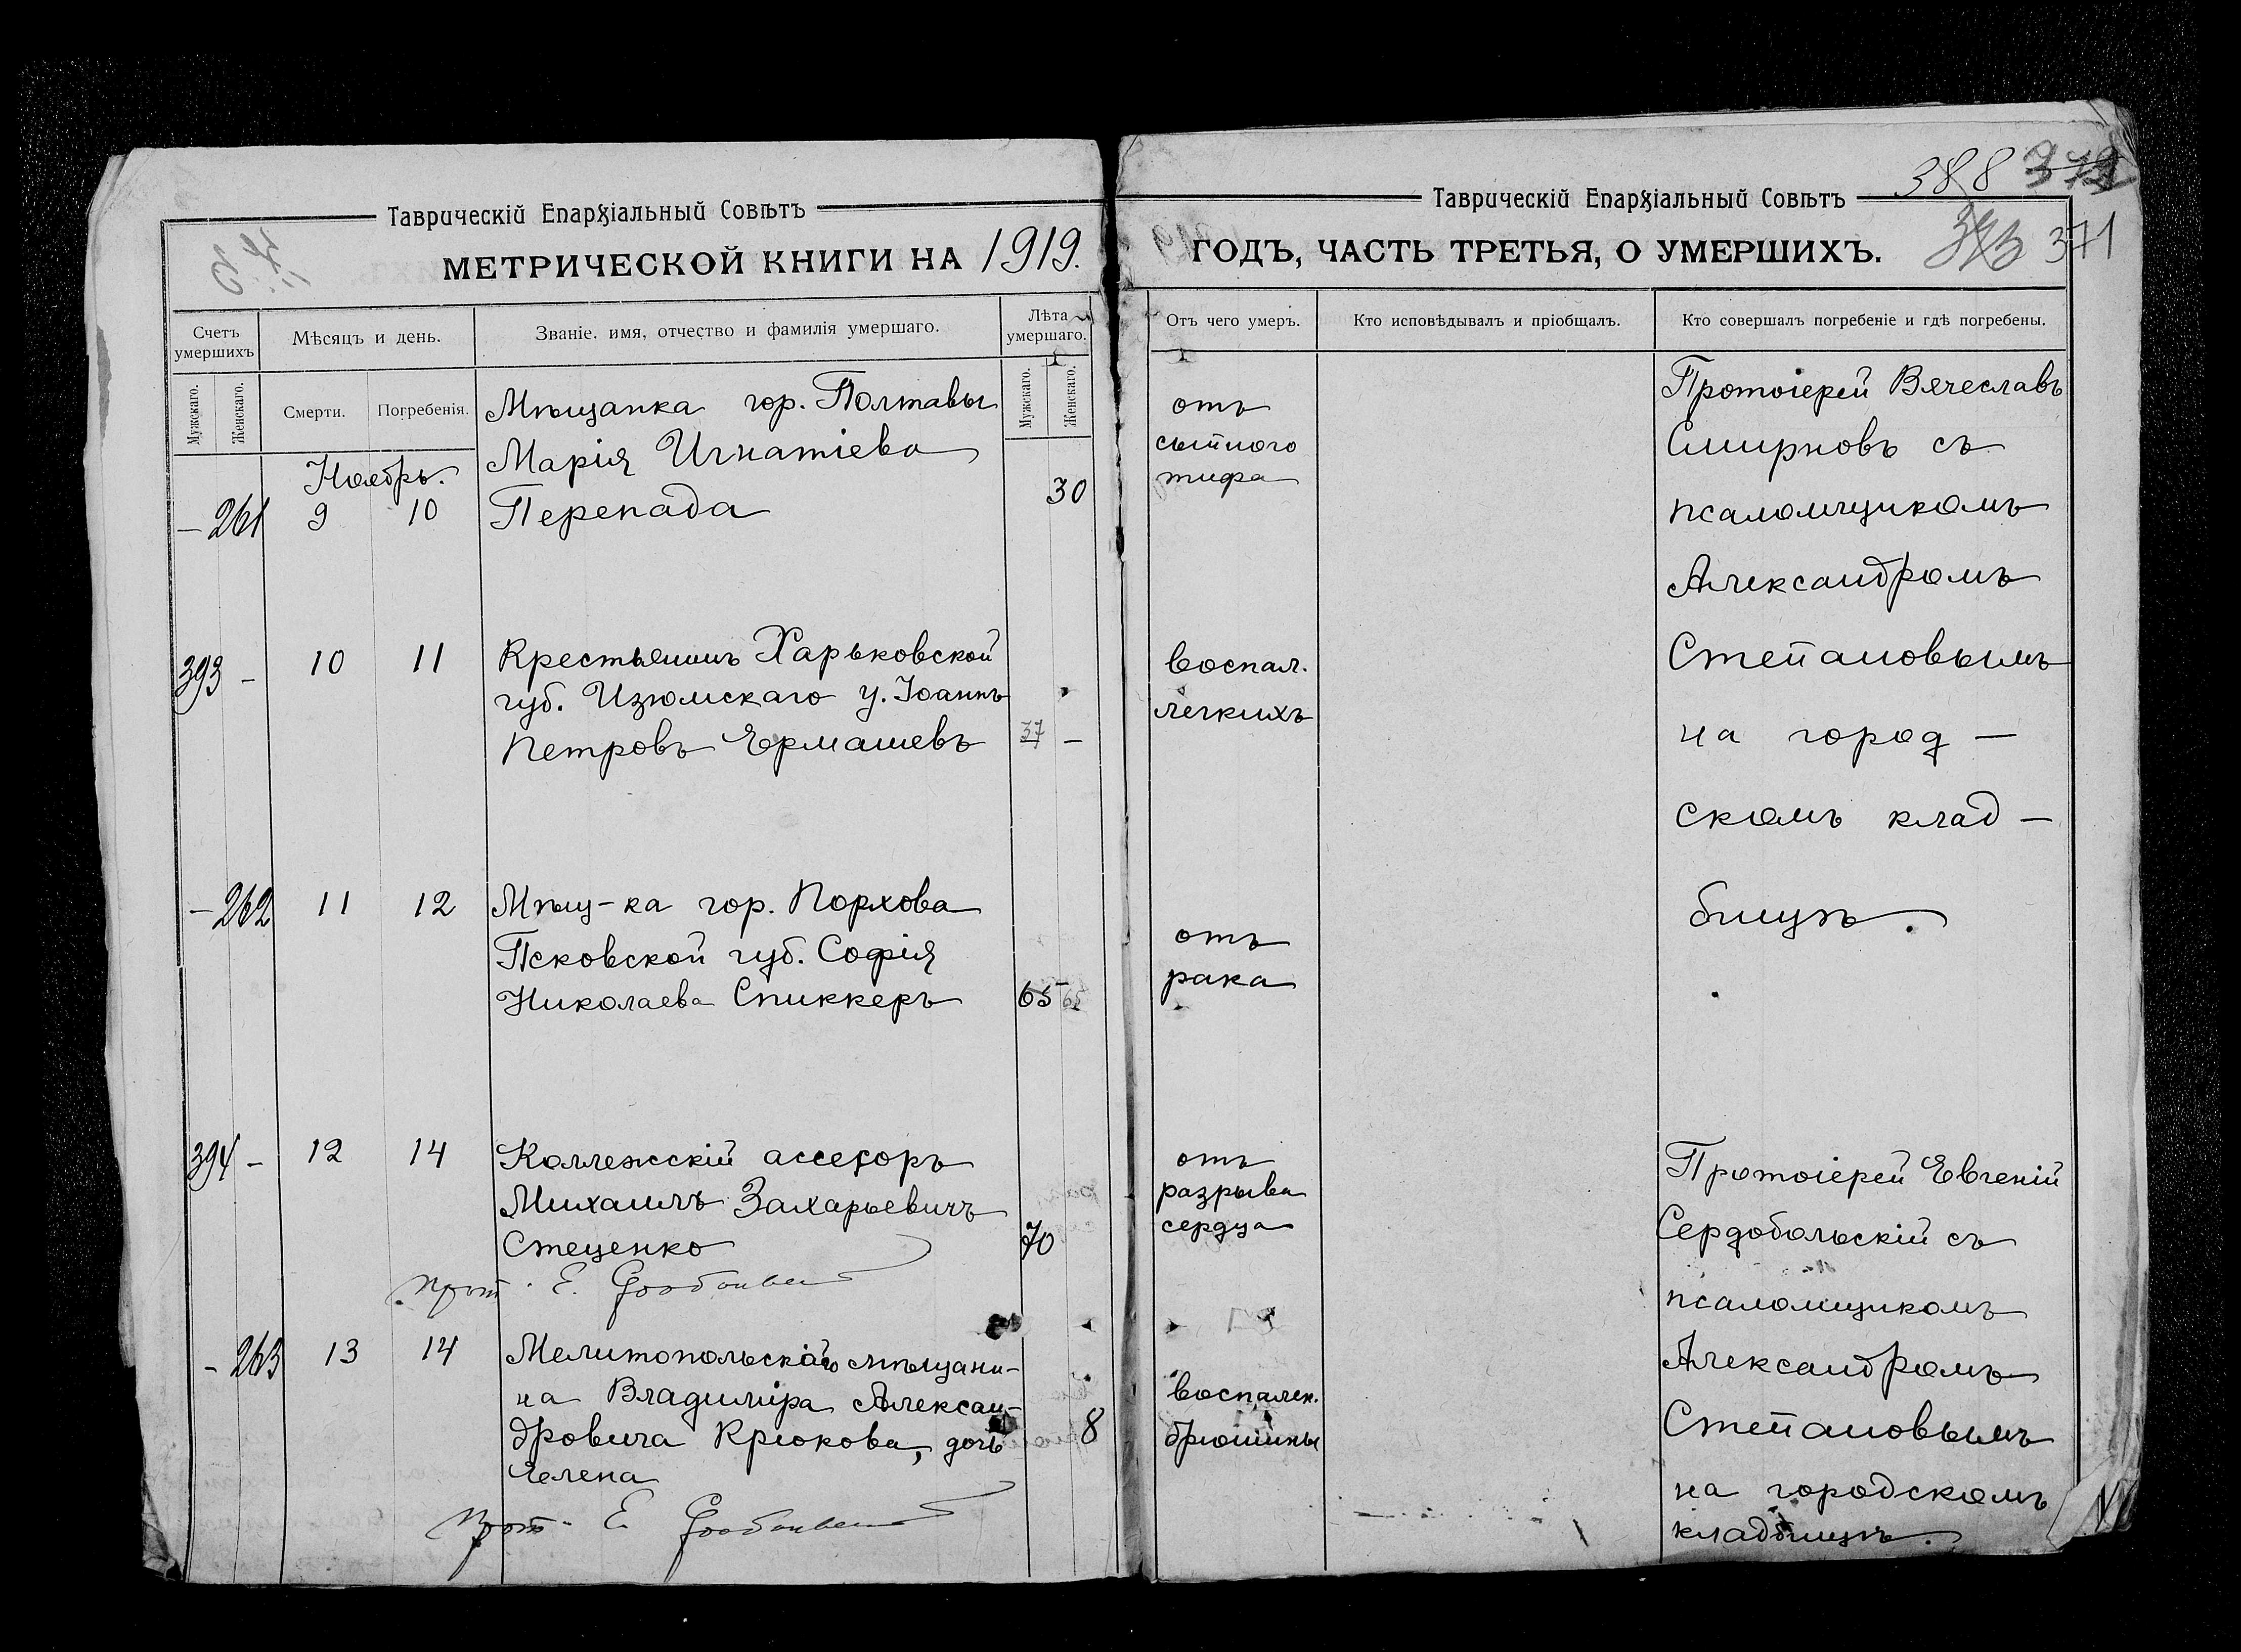 Таврическій Епархіальный Совѣтъ
МЕТРИЧЕСКОЙ КНИГИ НА 1919.
Счетъ умершихъ
Мѣсяцъ и день.
Званіе, имя, отчество и фамилія умершаго.
Лѣта умершаго.
Мужскаго.
Женскаго.
Смерти.
Погребенія.
Мужскаго.
Женскаго.
Ноябрь.
— 261 9 10
Мѣщанка гор. Полтавы
Марія Игнатіева
Перепада
30
393 — 10 11
Крестьянинъ Харьковской
губ. Изюмскаго у. Іоаннъ
Петровъ Ермашевъ
37 —
— 262 11 12
Мѣщ-ка гор. Порхова
Псковской губ. Софія
Николаева Спиккеръ
65 65
394 — 12 14
Коллежскій ассесоръ
Михаилъ Захарьевичъ
Стеценко
70
прот. Е.
- 263 13 14
Мелитопольскаго мѣщани-
на Владиміра Алексан-
дровича Крюкова, дочь
Елена
8
Прот. Е.
Таврическій Епархіальный Совѣтъ
388
371
ГОДЪ, ЧАСТЬ ТРЕТЬЯ, О УМЕРШИХЪ.
Отъ чего умеръ.
Кто исповѣдывалъ и пріобщалъ.
Кто совершалъ погребеніе и гдѣ погребены.
отъ
сыпного
тифа
воспал.
легкихъ
отъ
рака
отъ
разрыва
сердца
воспален.
брюшины
Протоіерей Вячеславъ
Смирновъ съ
псаломщикомъ
Александромъ
Степановымъ
на город —
скомъ клад —
бищѣ.
Протоіерей Евгеній
Сердобольскій съ
псаломщикомъ
Александромъ
Степановымъ
на городскомъ
кладбищѣ.